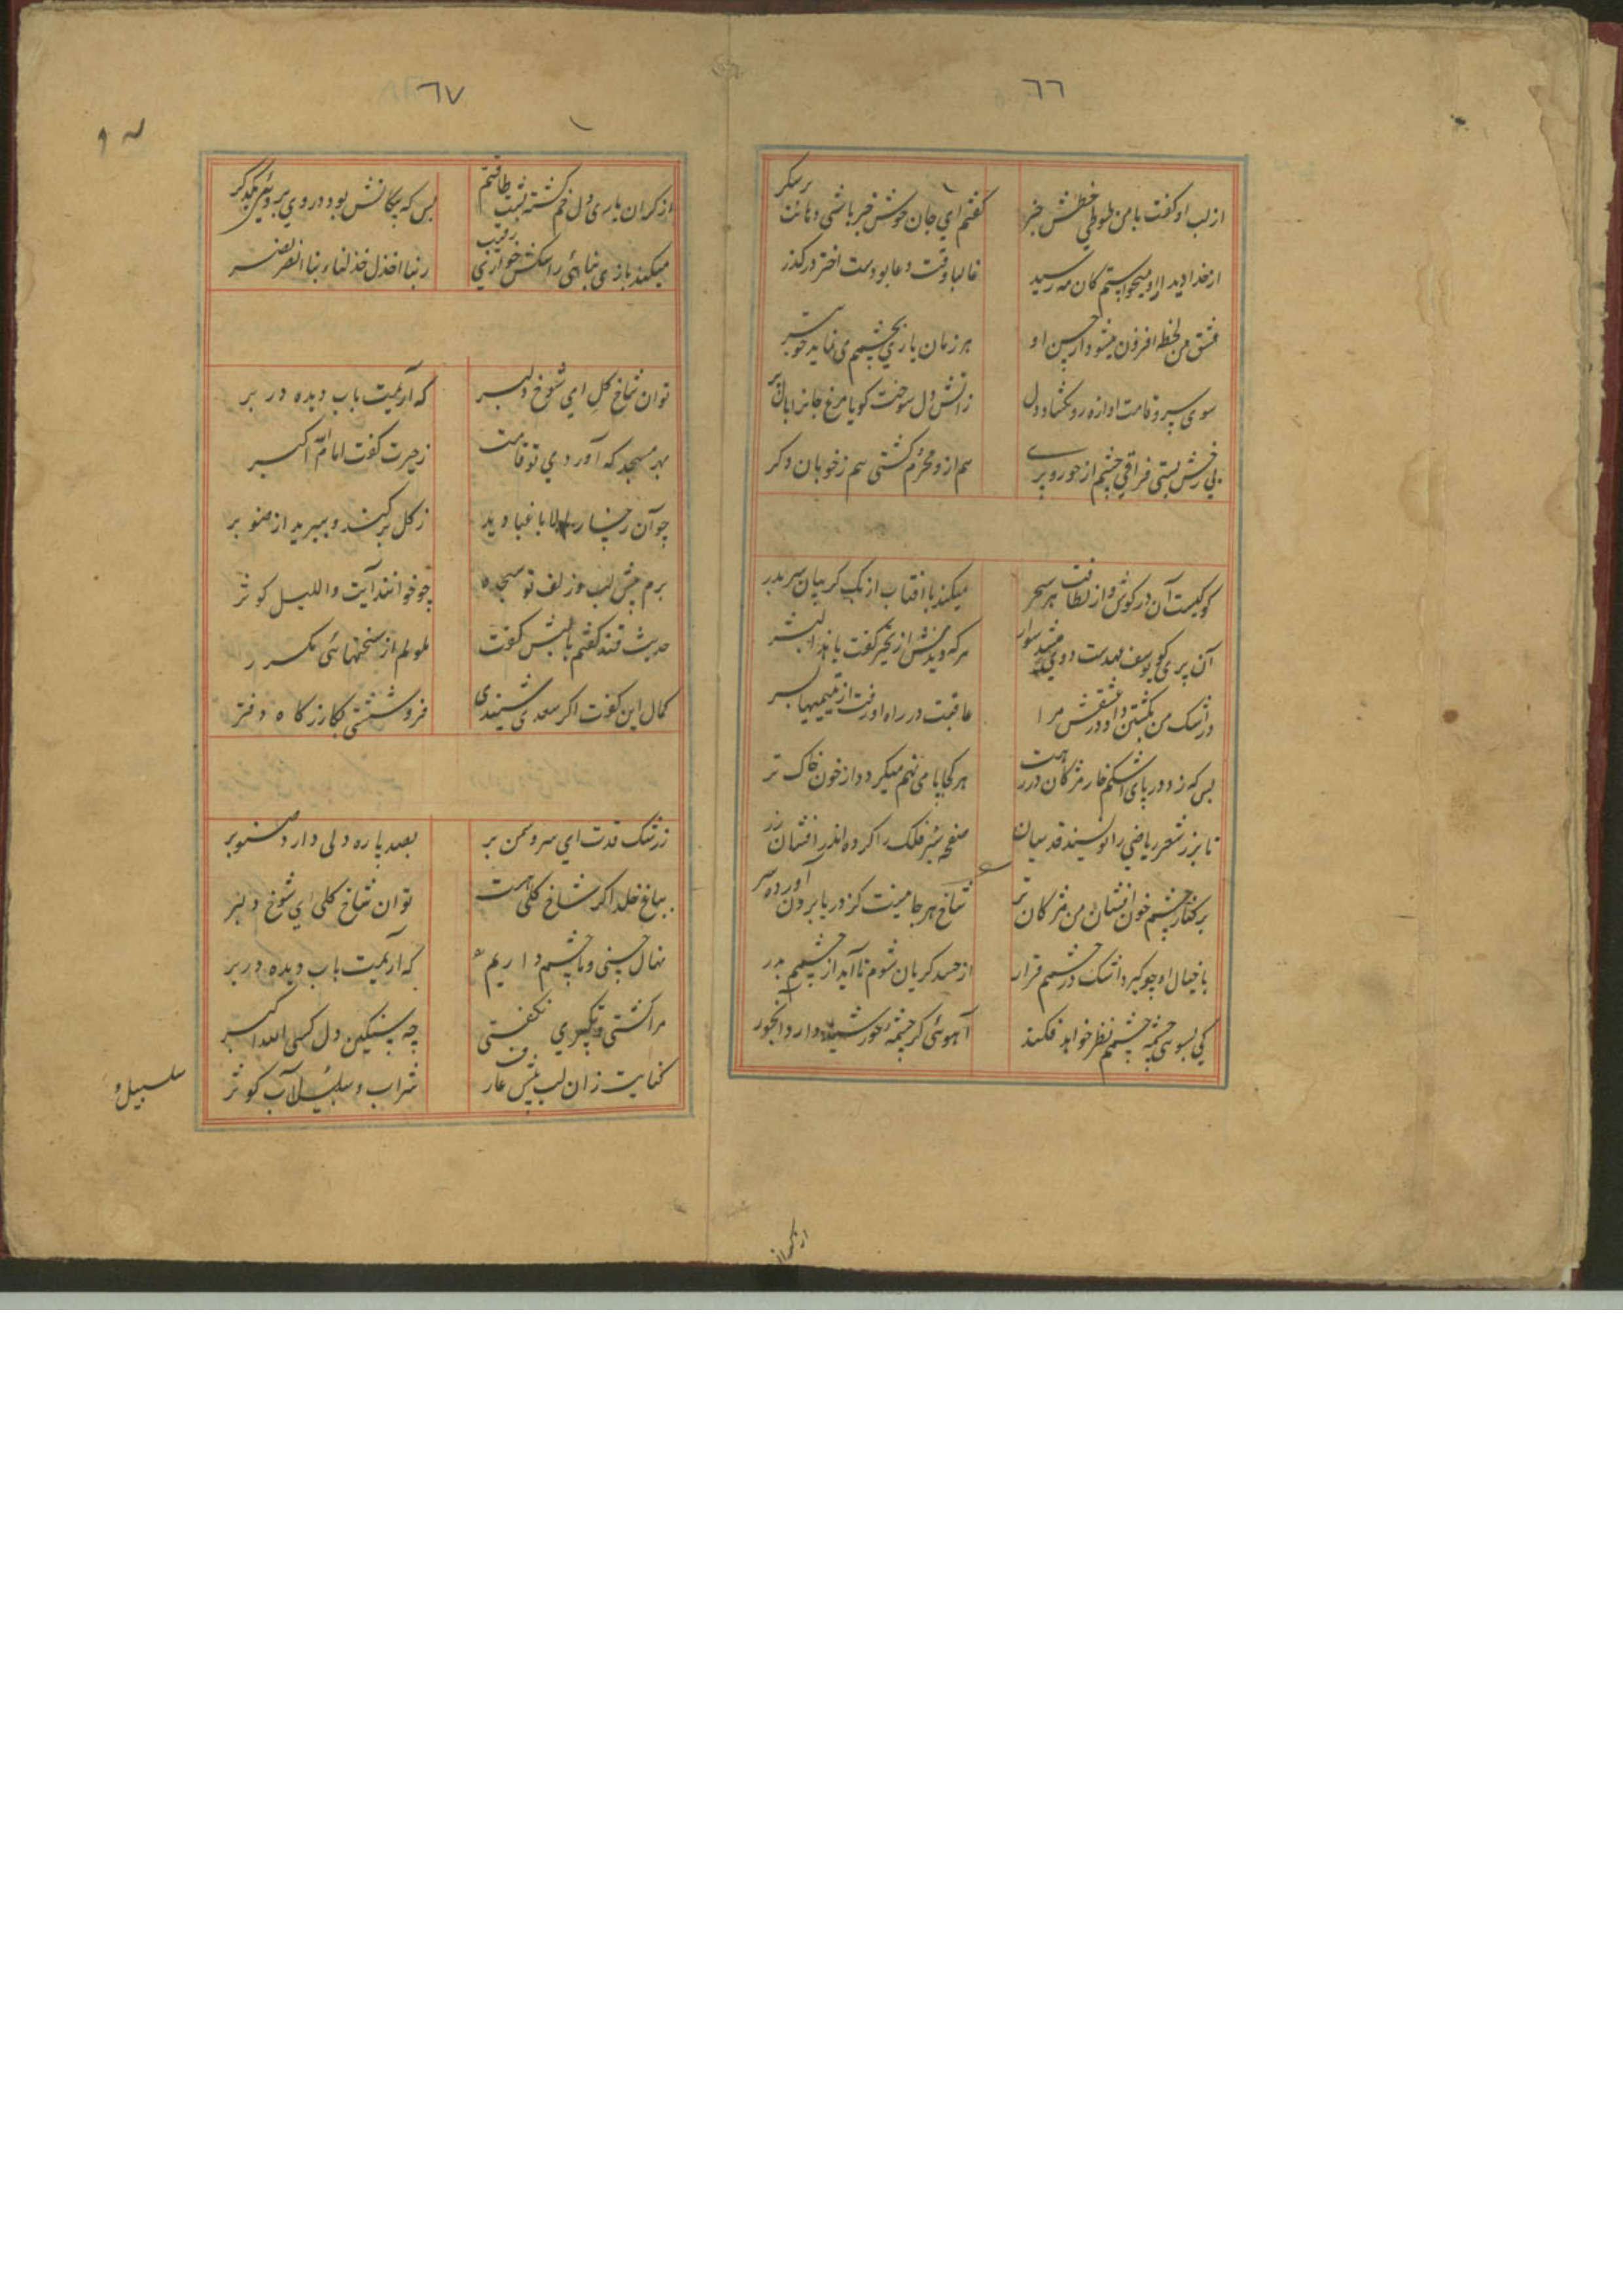 ٦٦
از لب او گفت با من طوطی خطش خبر
گفتم ای جان خوش خبر باشی دهانت پرشکر
از خدا دیدار او میخواستم کان مه رسید
غالبا وقت دعا بودست اختر در گذر
عشق من لحظه لحظه افزون میشود از حسن او
هر زمان یاری بچشمم می نماید خوبتر
سوی سرو قامت او از ره رو گشاد دل
زاتش دل سوخت گویا مرغ جانرا بال و پر
بی رخش بستی فراقی چشم از حور و پری
هم ازو محروم گشتی هم ز خوبان دگر
کوکبست آن در گوش و از لطافت هر سحر
میکند با آفتاب از یک گریبان سر بدر
آن پری کو یوسف عهدست دوی شد سوار
هر که دیدش از تحیر گفت ما هذا بشر
در اشک من بکشتن داد در عشقش مرا
عاقبت در راه او رفت از یتیمیها بسر
بس که زد در پای اشکم خار مژگان در رهت
هر کجا پا می نهم میگردد از خون خاک تر
تا بزر شعر ریاضی را نویسند قدسیان
صفحه سبز فلک را کرده اند افشان زر
بر کنار چشم خون افشان من مژگان تر
شاخ مرجانیست کز دریا برون آورده سر
با خیال او چو گیرد اشک در چشمم قرار
از حسد گریان شوم تا آید از چشمم بدر
کی بسوی چشمه چشمم نظر خواهد فکند
آهوئی کز چشمه خورشید دارد آبخور
٦٧
از گران باری دل خم گشته پشت طاقتم
بس که پیکانش بود در وی بروی یکدگر
میکند بازی بنائی را سگش خواری رقیب
ربنا اخذل خذلنا ربنا انصر نصر
توان شاخ گل ای شوخ دلبر
که آریمت باب دیده در بر
بهر مسجد که آوردی تو قامت
ز حیرت گفت امام الله اکبر
چو آن رخسار و بالا باغبان دید
ز گل برکند و ببرید از صنوبر
برم پیش لب و زلف تو سجده
چو خوانند آیت واللیل کوثر
حدیث قند گفتم با لبش گفت
ملولم از سخنهائی مکرر
کمال این گفت اگر سعدی شنیدی
فروشستی بکارزگاه دفتر
ز رشک قدت ای سرو سمن بر
بصد پاره دلی دارد صنوبر
بباغ خلد اگر شاخ گلی هست
توان شاخ گلی ای شوخ دلبر
نهال حسنی و ما چشم داریم
که آریمت باب دیده در بر
مرا کشتی و تکبیری نگفتی
چه سنگین دل کسی الله اکبر
کنایت زان لب شیرین عارف
شراب و سلسبیل آب کوثر
سلسبیل و